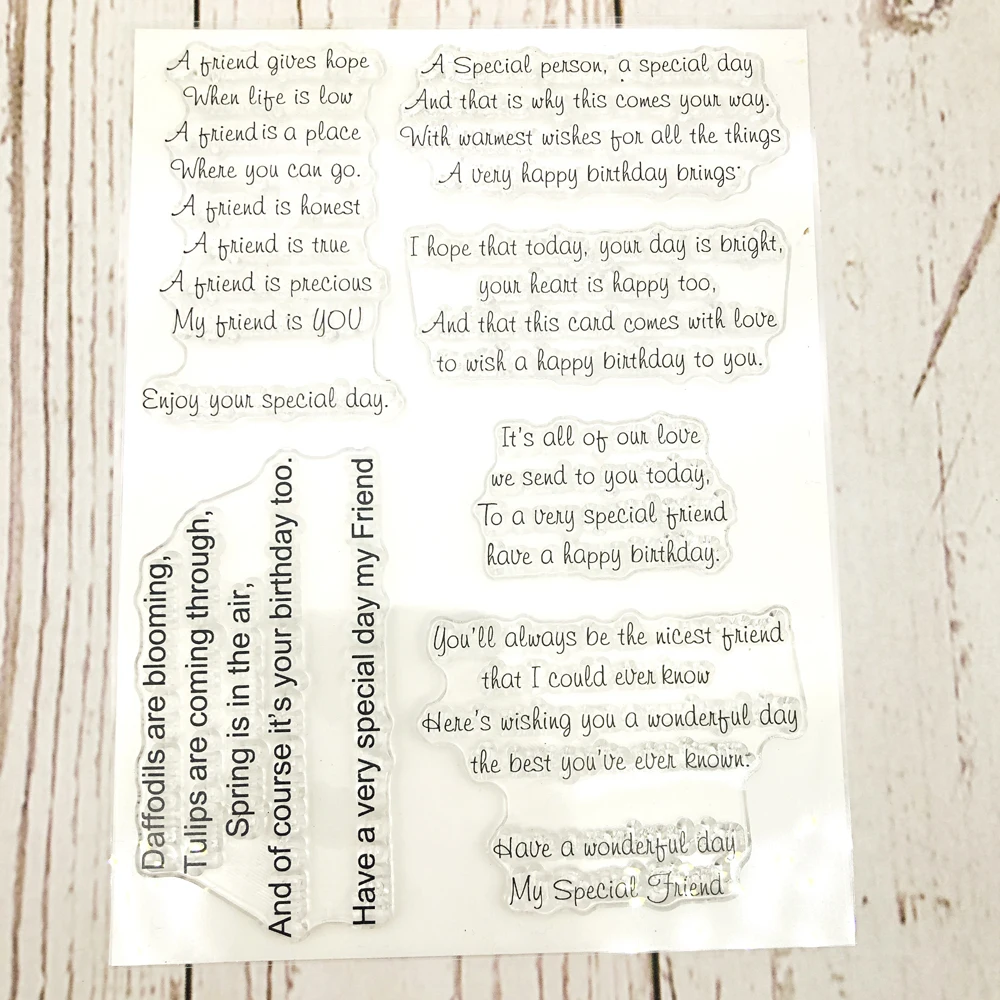 A friend gives hope
When life is low
A friend is a place
Where you can go.
A friend is honest
A friend is true
A friend is precious
My friend is YOU
Enjoy your special day.
Daffodils are blooming,
Tulips are coming through,
Spring is in the air,
And of course it's your birthday too.
Have a very special day my Friend
A Special person, a special day
And that is why this comes your way.
With warmest wishes for all the things
A very happy birthday brings.
I hope that today, your day is bright,
your heart is happy too,
And that this card comes with love
to wish a happy birthday to you.
It's all of our love
we send to you today,
To a very special friend
have a happy birthday.
You'll always be the nicest friend
that I could ever know
Here's wishing you a wonderful day
the best you've ever known.
Have a wonderful day
My Special Friend